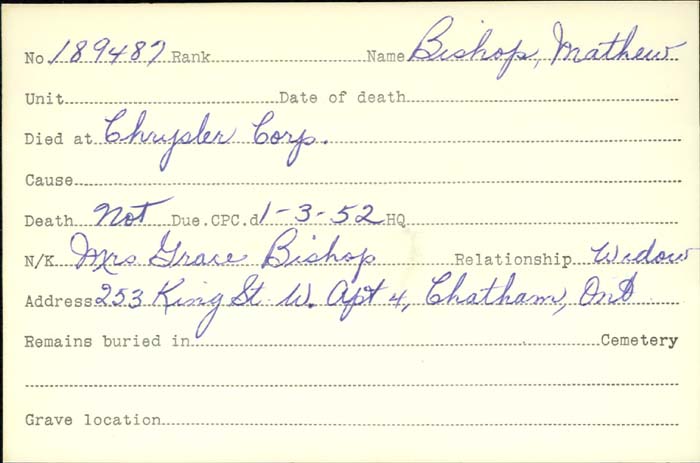 No. 189487 Rank Name Bishop, Mathew
Unit Date of death
Died at Chrysler Corp.
Cause
Death Not Due. CPC.d 1-3-52 HQ
N/K Mrs Grace Bishop Relationship Widow
Address 253 King St W. Apt 4, Chatham, Ont
Remains buried in Cemetery
Grave location